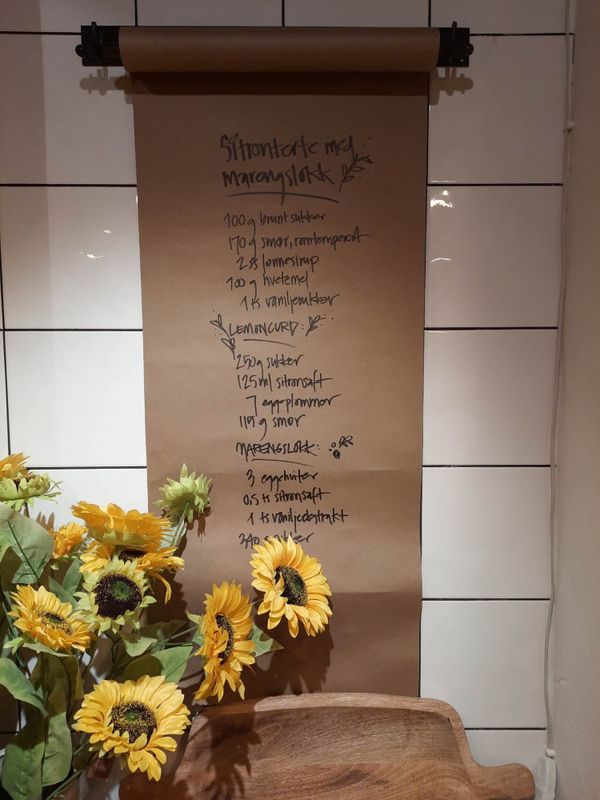 Sitronterte med
marengslokk
100 g brunt sukker
170 g smør, romtemperert
2 ss lønnesirup
700 g hvetemel
1 ts vaniljesukker
LEMONCURD:
250 g sukker
125 ml sitronsaft
7 eggeplommer
115 g smør
MARENGSLOKK:
3 eggehviter
0,5 ts sitronsaft
1 ts vaniljeekstrakt
340 sukker